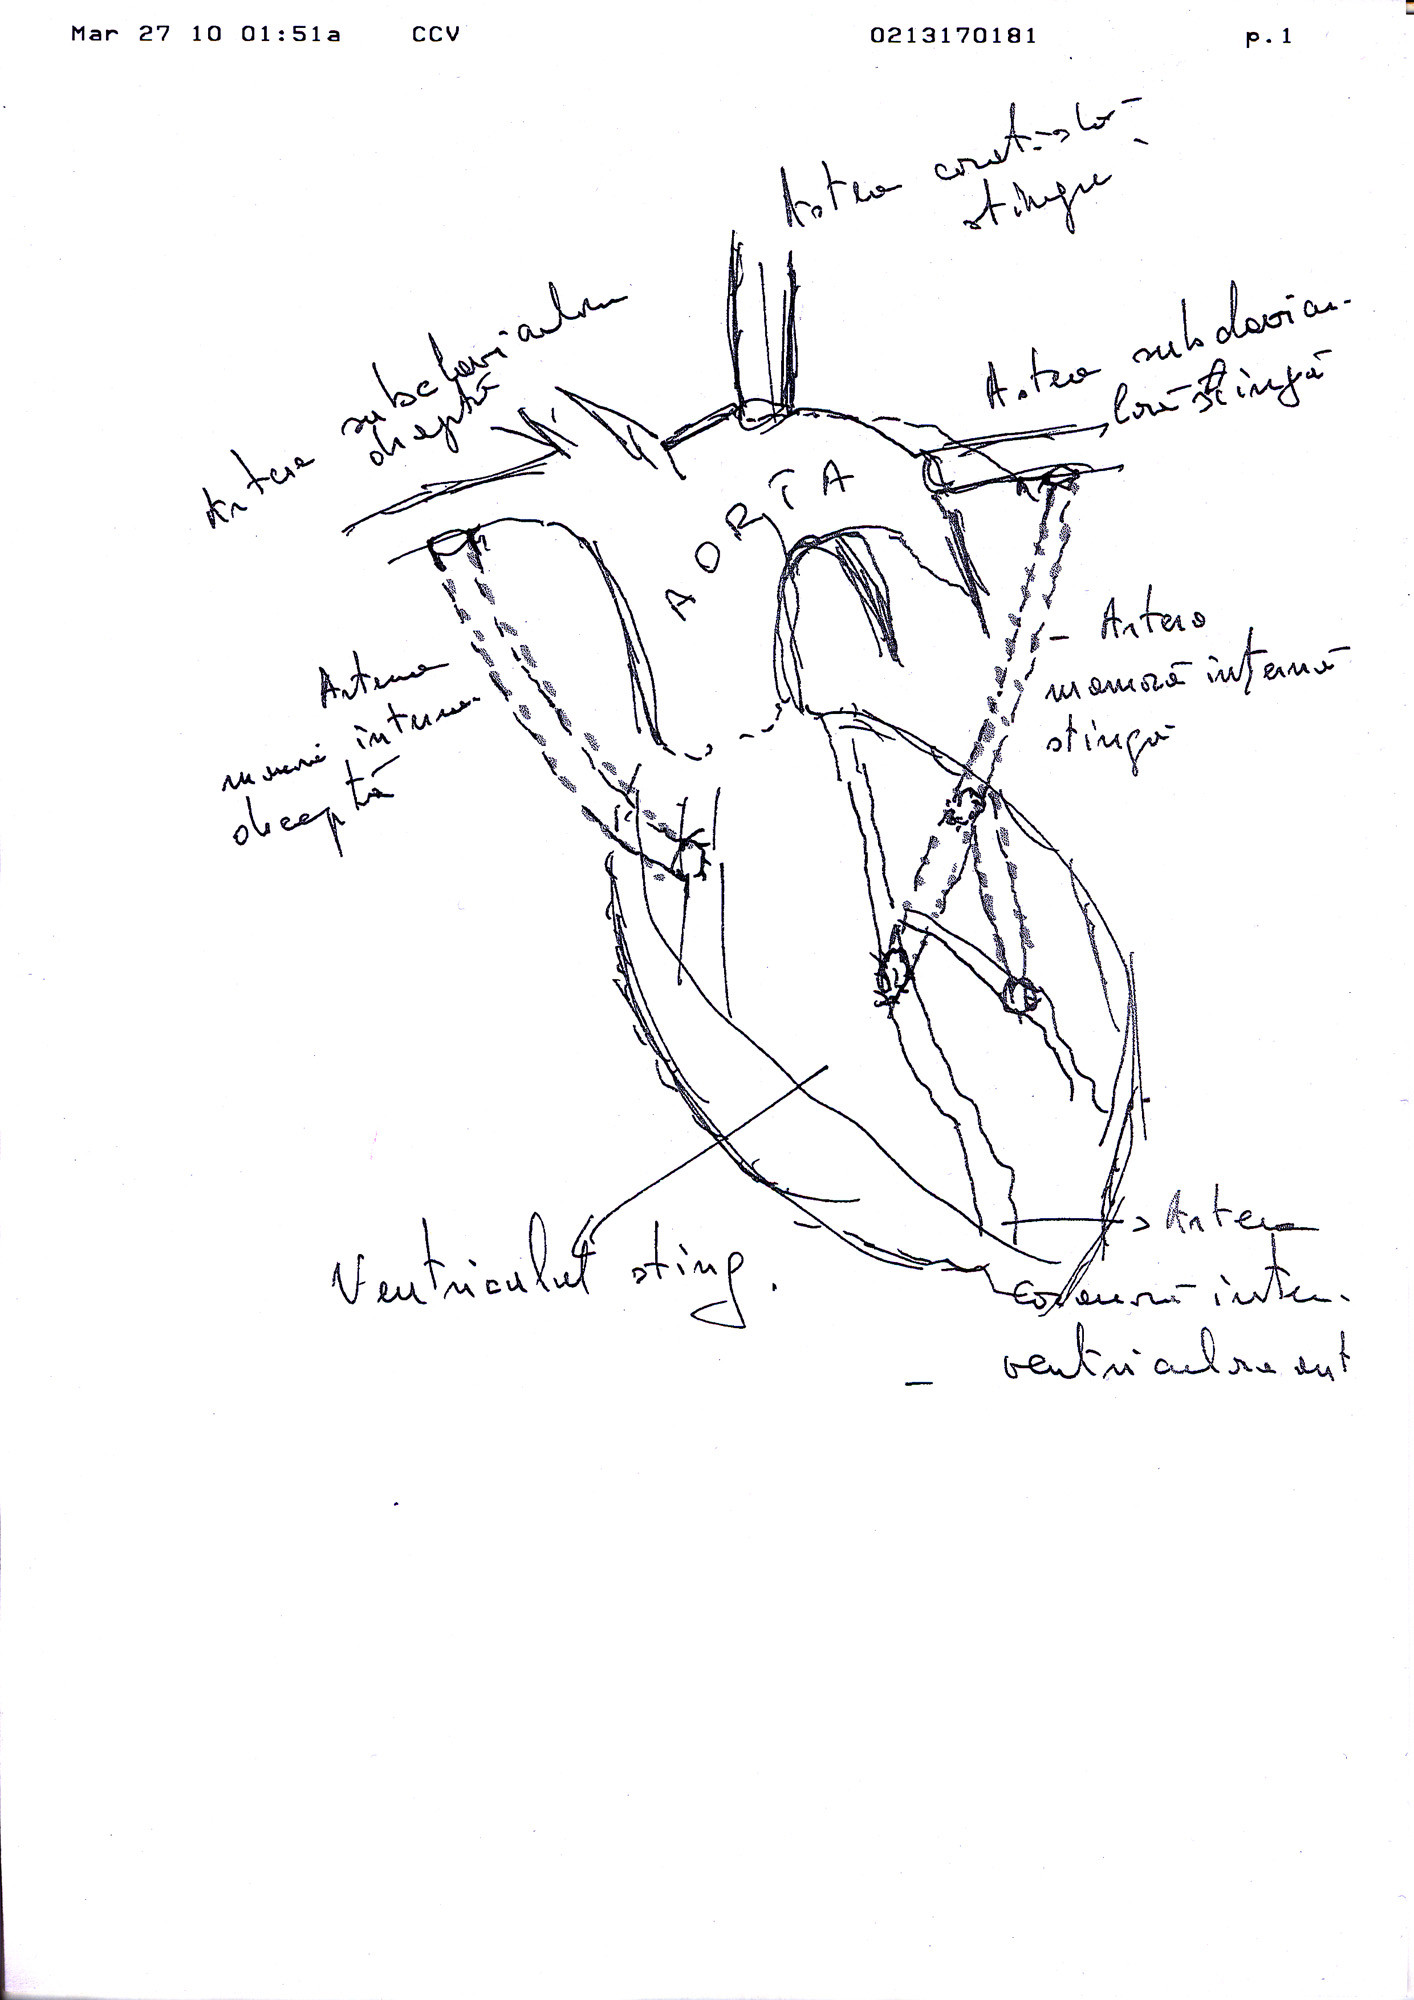 Mar 27 10 01:51a CCV 0213170181 p.1
Artera carotidă
stingă
Artera subclaviculară
dreaptă
Artera subclavicu-
lară stingă
AORTA
Artera
mamară internă
stingă
Artera
internă
dreaptă
Ventriculul sting.
Artera
Coronară inter-
ventriculară ant